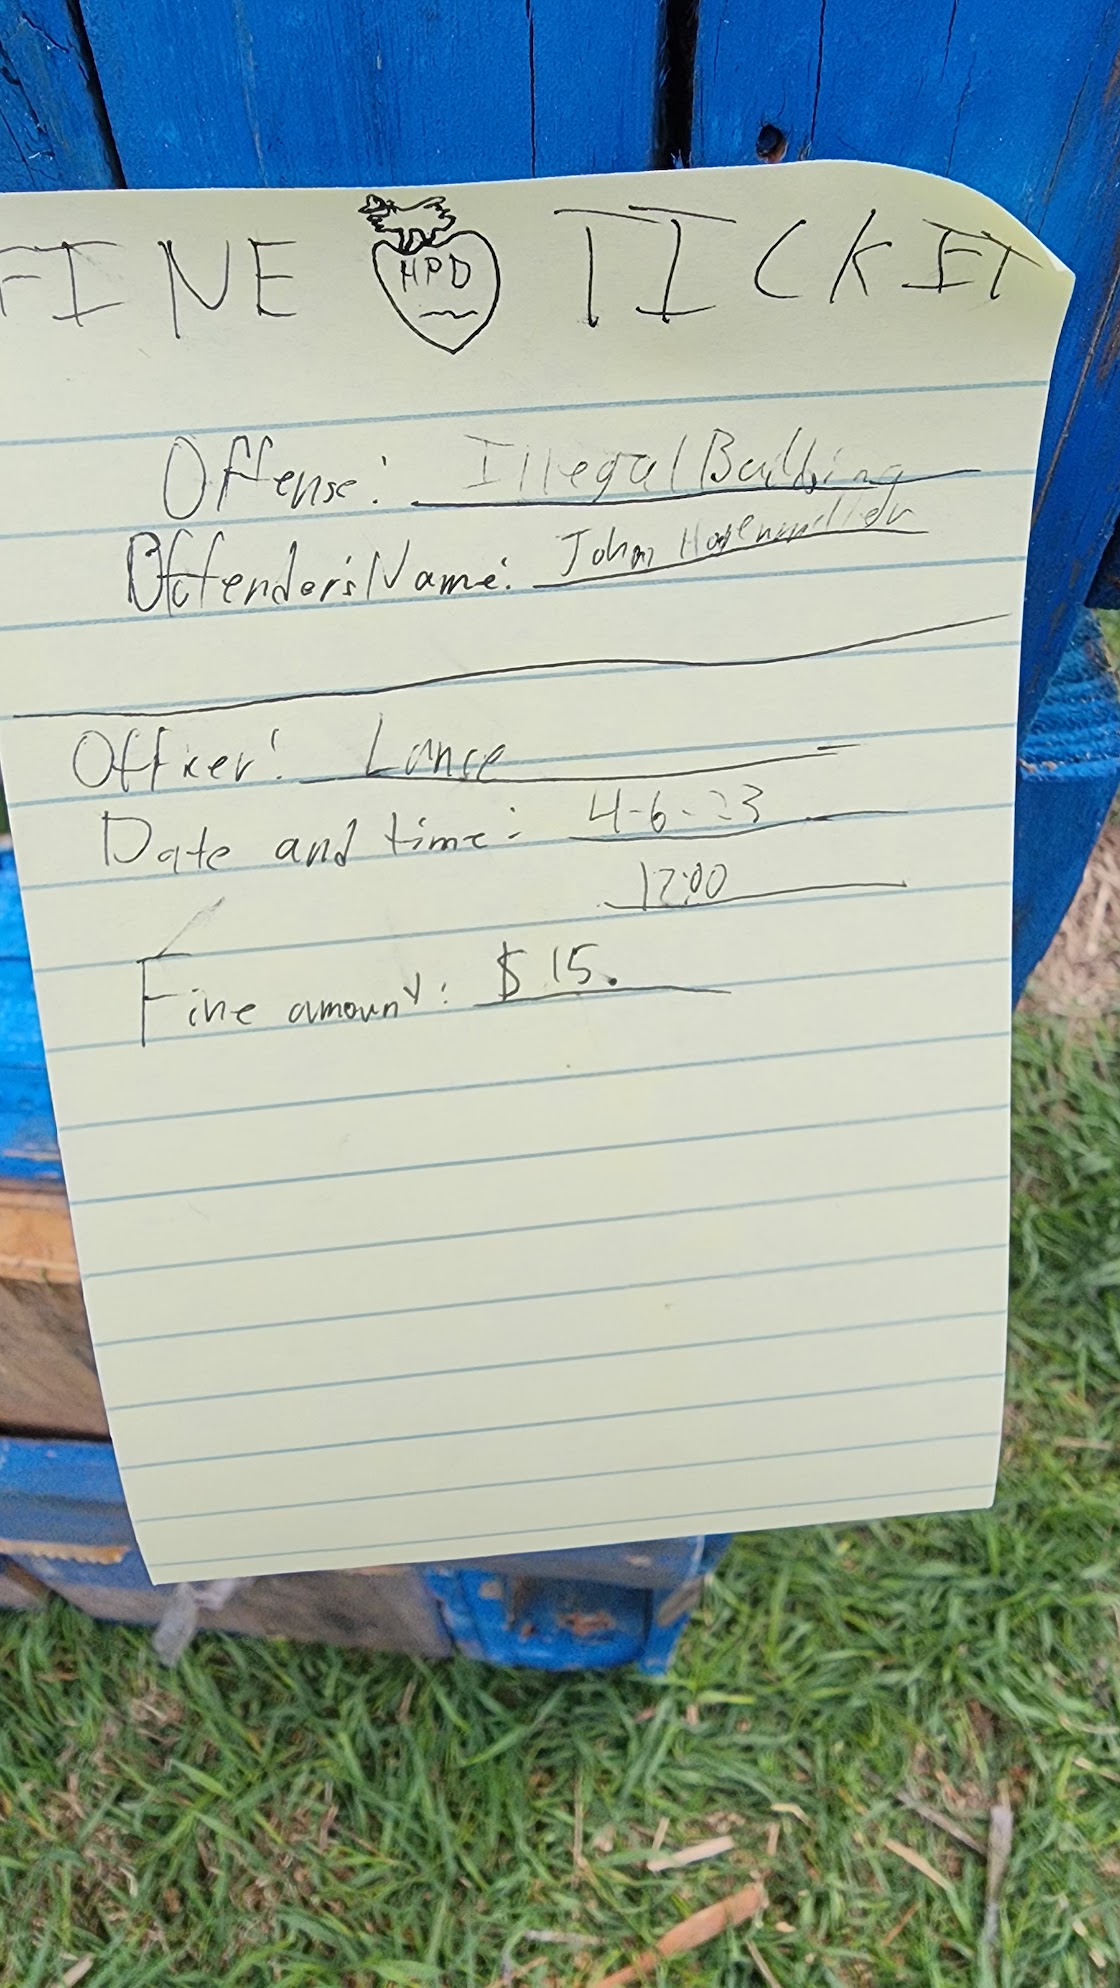 FINE HPD TICKET
Offense: Illegal Building
Offender's Name: John
Officer: Lance
Date and time: 4-6-23
12:00
Fine amount: $15.